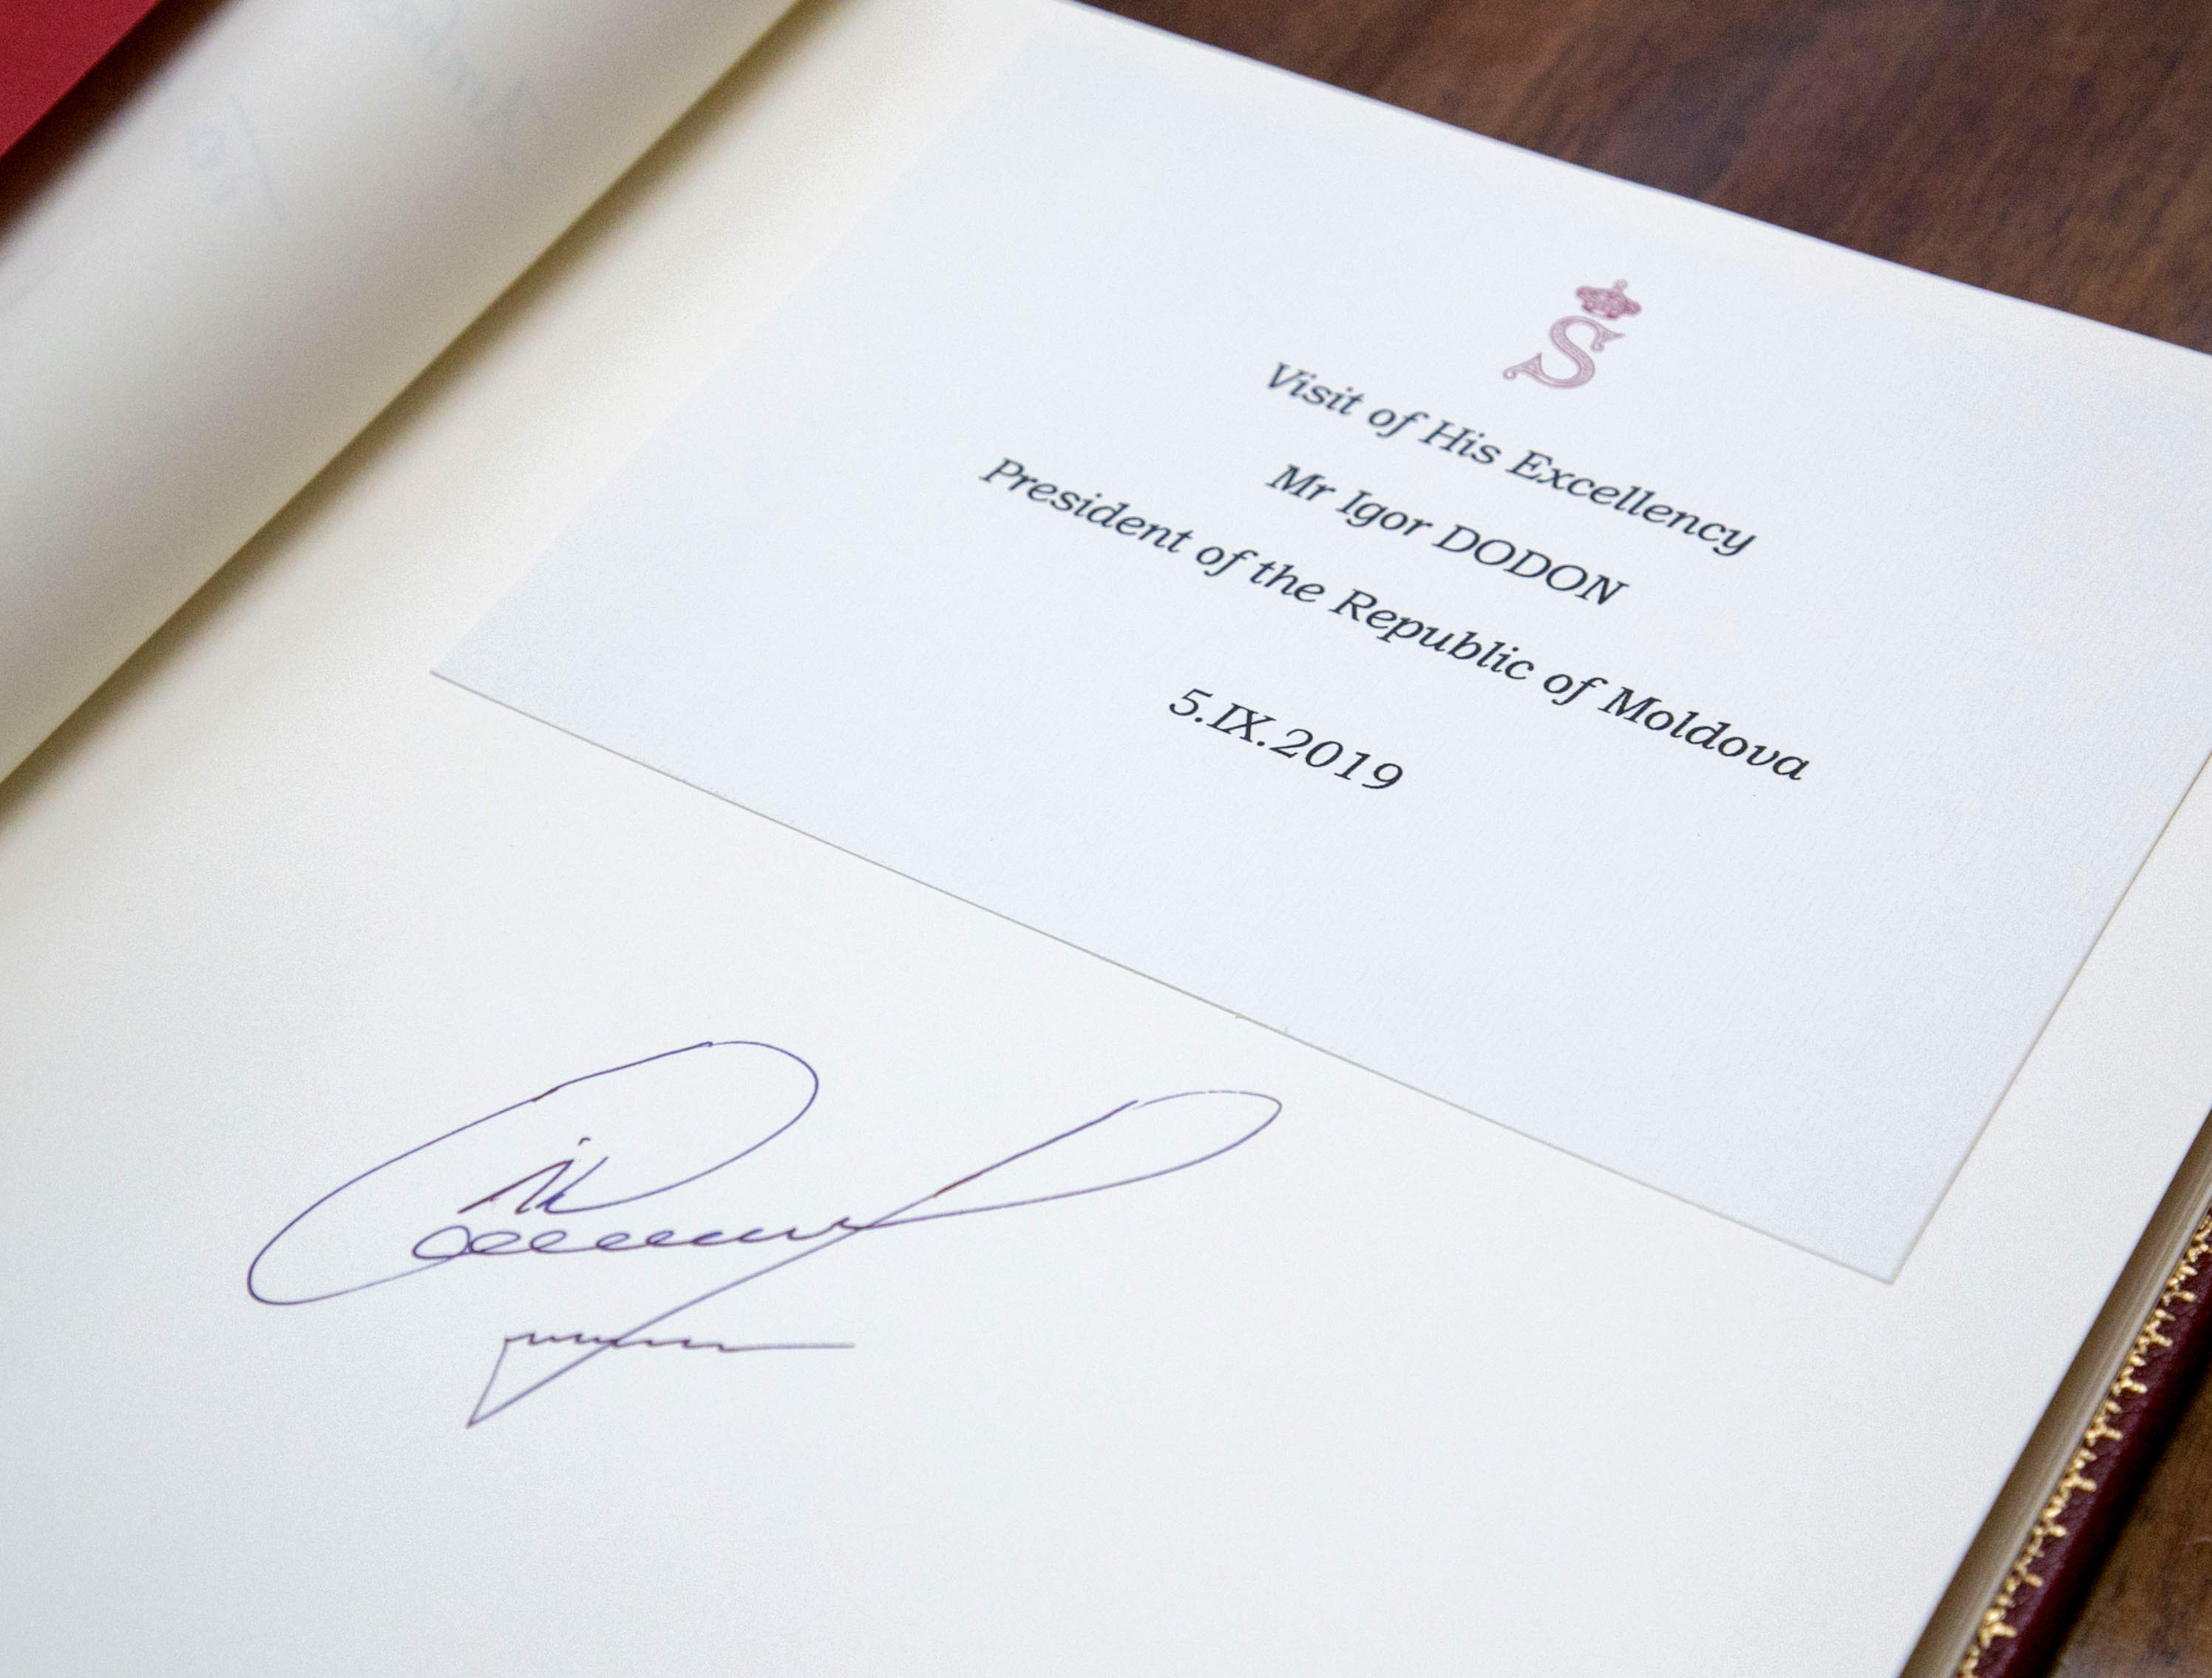 S
Visit of His Excellency
Mr Igor DODON
President of the Republic of Moldova
5.IX.2019